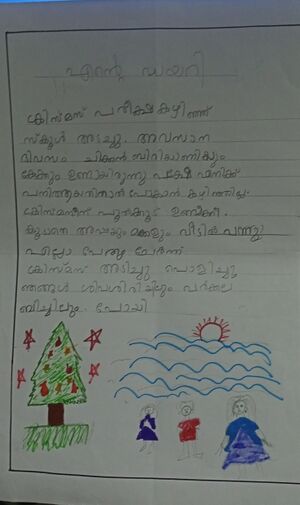 എന്റെ ഡയറി
ക്രിസ്മസ് പരീക്ഷകഴിഞ്ഞ്
സ്കൂൾ അടച്ചു. അവസാന
ദിവസം ചിക്കൻബിരിയാണിയും
കേക്കും ഉണ്ടായിരുന്നു. പക്ഷേ എനിക്ക്
പനിആയതിനാൽ പോകാൻ കഴിഞ്ഞില്ല
ക്രിസ്മസിന് പുൽക്കൂട് ഉണ്ടാക്കി.
മക്കളും വീട്ടിൽ വന്നു
എല്ലാ പേരും ചേർന്ന്
ക്രിസ്മസ് അടിച്ചു പൊളിച്ചു
ഞങ്ങൾ ശിവഗിരിയിലും വർക്കല
ബീച്ചിലും പോയി